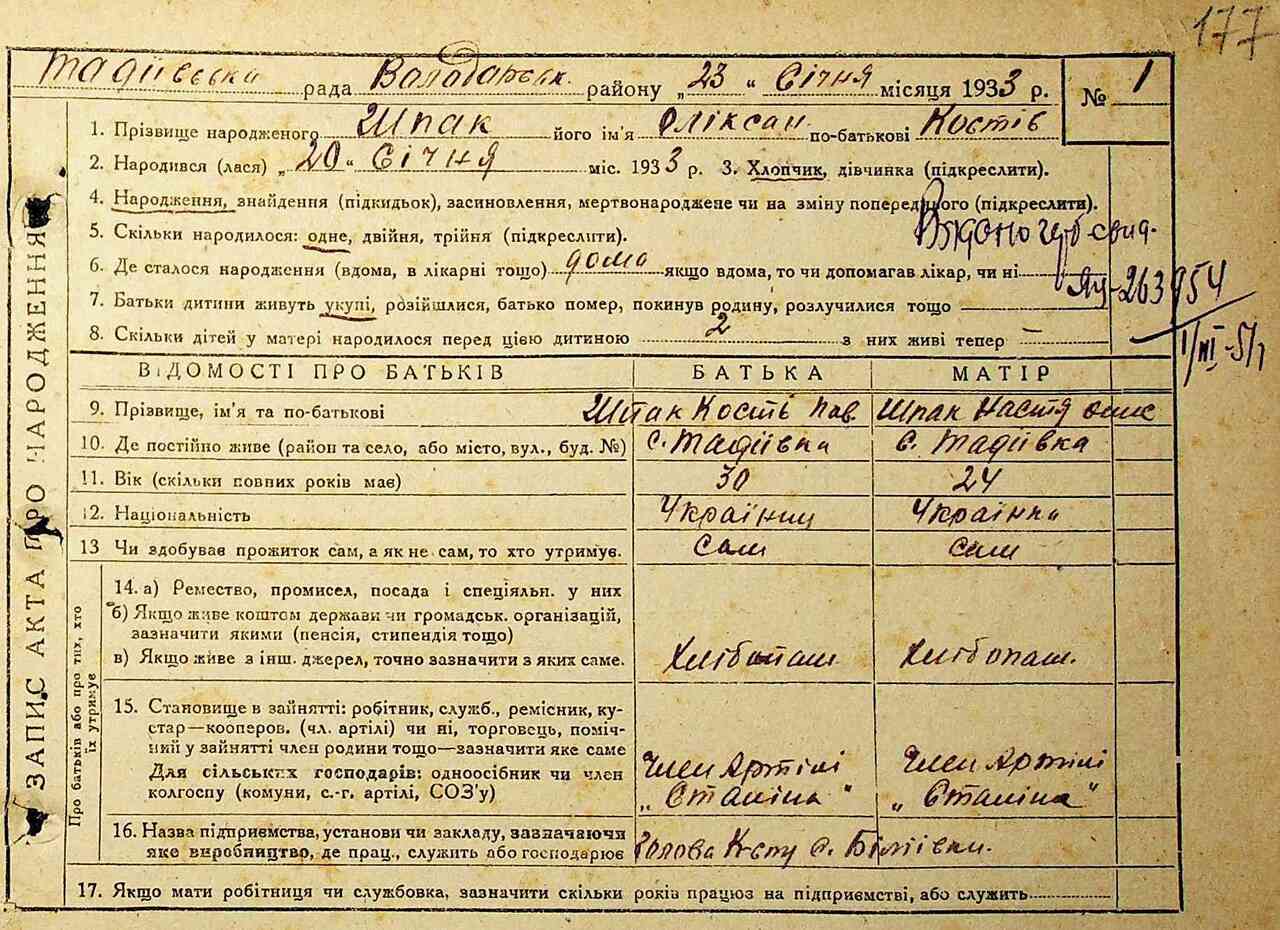 177
Тадіївська рада Володарськ. району „23 “ Січня місяця 1933 р. № 1
1. Прізвище народженого Шпак його ім'я Оліксан по-батькові Костів
2. Народився (лася) „20“ Січня міс. 1933 р. 3. Хлопчик, дівчинка (підкреслити).
4. Народження, знайдення (підкидьок), засиновлення, мертвонароджене чи на зміну попереднього (підкреслити).
5. Скільки народилося: одне, двійня, трійня (підкреслити).
Видано свид-
6. Де сталося народження (вдома, в лікарні тощо) дома якщо вдома, то чи допомагав лікар, чи ні
-263954
7. Батьки дитини живуть укупі, розійшлися, батько помер, покинув родину, розлучилися тощо
8. Скільки дітей у матері народилося перед цією дитиною 2 з них живі тепер —
1/III-51
ВІДОМОСТІ ПРО БАТЬКІВ БАТЬКА МАТІР
9. Прізвище, ім'я та по-батькові Шпак Кость Пав Шпак Настя
10. Де постійно живе (район та село, або місто, вул., буд. №) с. Тадіївка с. Тадіївка
11. Вік (скільки повних років має) 30 24
12. Національність Українец Українка
13 Чи здобував прожиток сам, а як не сам, то хто утримує. Сам сам
14. а) Ремество, промисел, посада і спеціяльн. у них
б) Якщо живе коштом держави чи громадськ. організацій,
зазначити якими (пенсія, стипендія тощо)
в) Якщо живе з інш. джерел, точно зазначити з яких саме. Хлібопаш Хлібопаш.
15. Становище в зайнятті: робітник, служб., ремісник, ку-
стар—кооперов. (чл. артілі) чи ні, торговець, поміч-
ний у зайнятті член родини тощо—зазначити яке саме
Для сільських господарів: одноосібник чи член
колгоспу (комуни, с.-г. артілі, СОЗ'у)
Член Артілі
„ Сталіна "
Член Артілі
„ Сталіна "
16. Назва підприємства, установи чи закладу, зазначаючи
яке виробництво, де прац., служить або господарює
Голова с. Біліївки.
17. Якщо мати робітниця чи службовка, зазначити скільки років працює на підприємстві, або служить
ЗАПИС АКТА ПРО НАРОДЖЕННЯ
Про батьків або про тих, хто
їх утримує